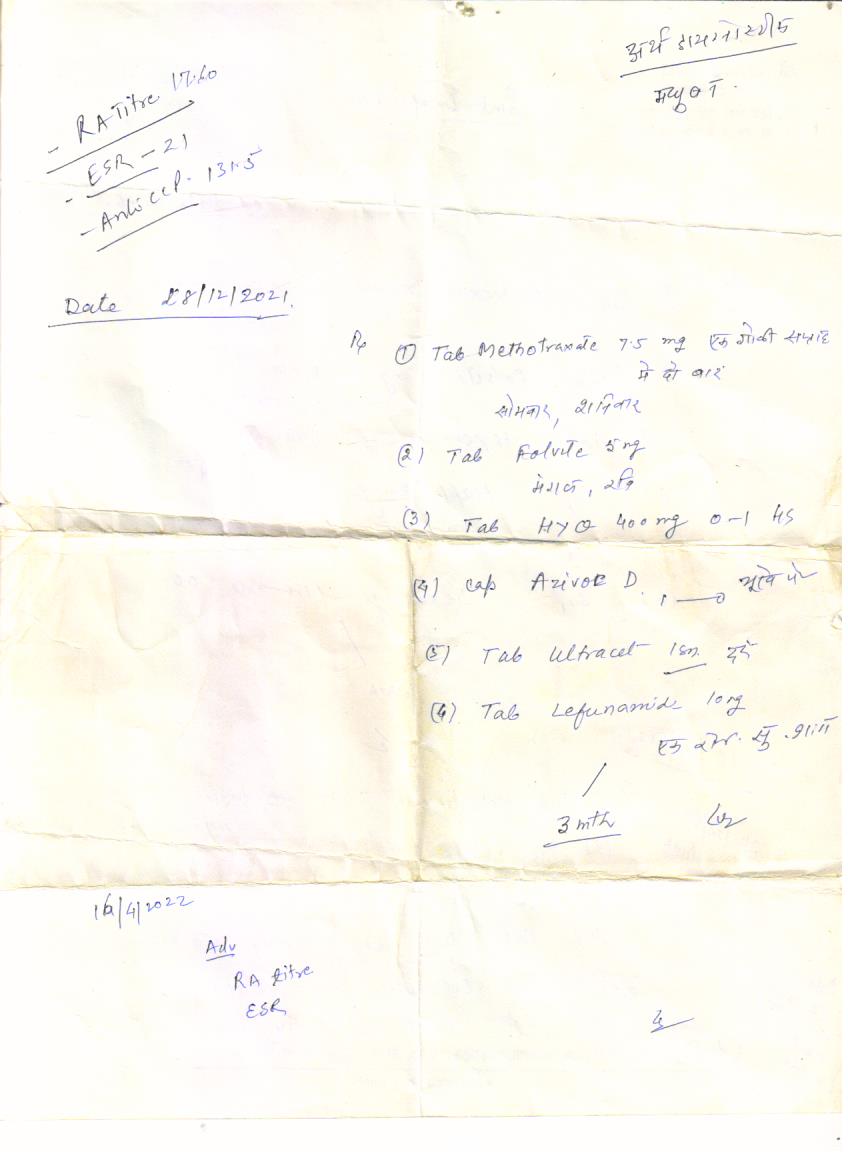 अर्थ डायग्नोस्टीक
- RA Titre 17.60
- ESR - 21
- Anti CCP. 131.5
Date 28/12/2021.
Rx ① Tab Methotraxate 7.5 mg एक गोली सप्ताह
मे दो बार
सोमवार, शनिवार
(2) Tab Folvite 5 mg
मंगल, रवि
(3) Tab HYQ 400 mg 0-1 HS
(4) Cap D. 1 —— 0 भूखे पेट
(5) Tab Ultracet दर्द
(6) Tab Lefunamide 10 mg
एक
3 mth
/4/2022
Adv
RA titre
ESR